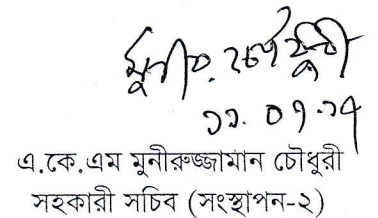 মুনীর চৌধুরী
১১.০৭.১৭
এ.কে.এম মুনীরুজ্জামান চৌধুরী
সহকারী সচিব (সংস্থাপন-২)